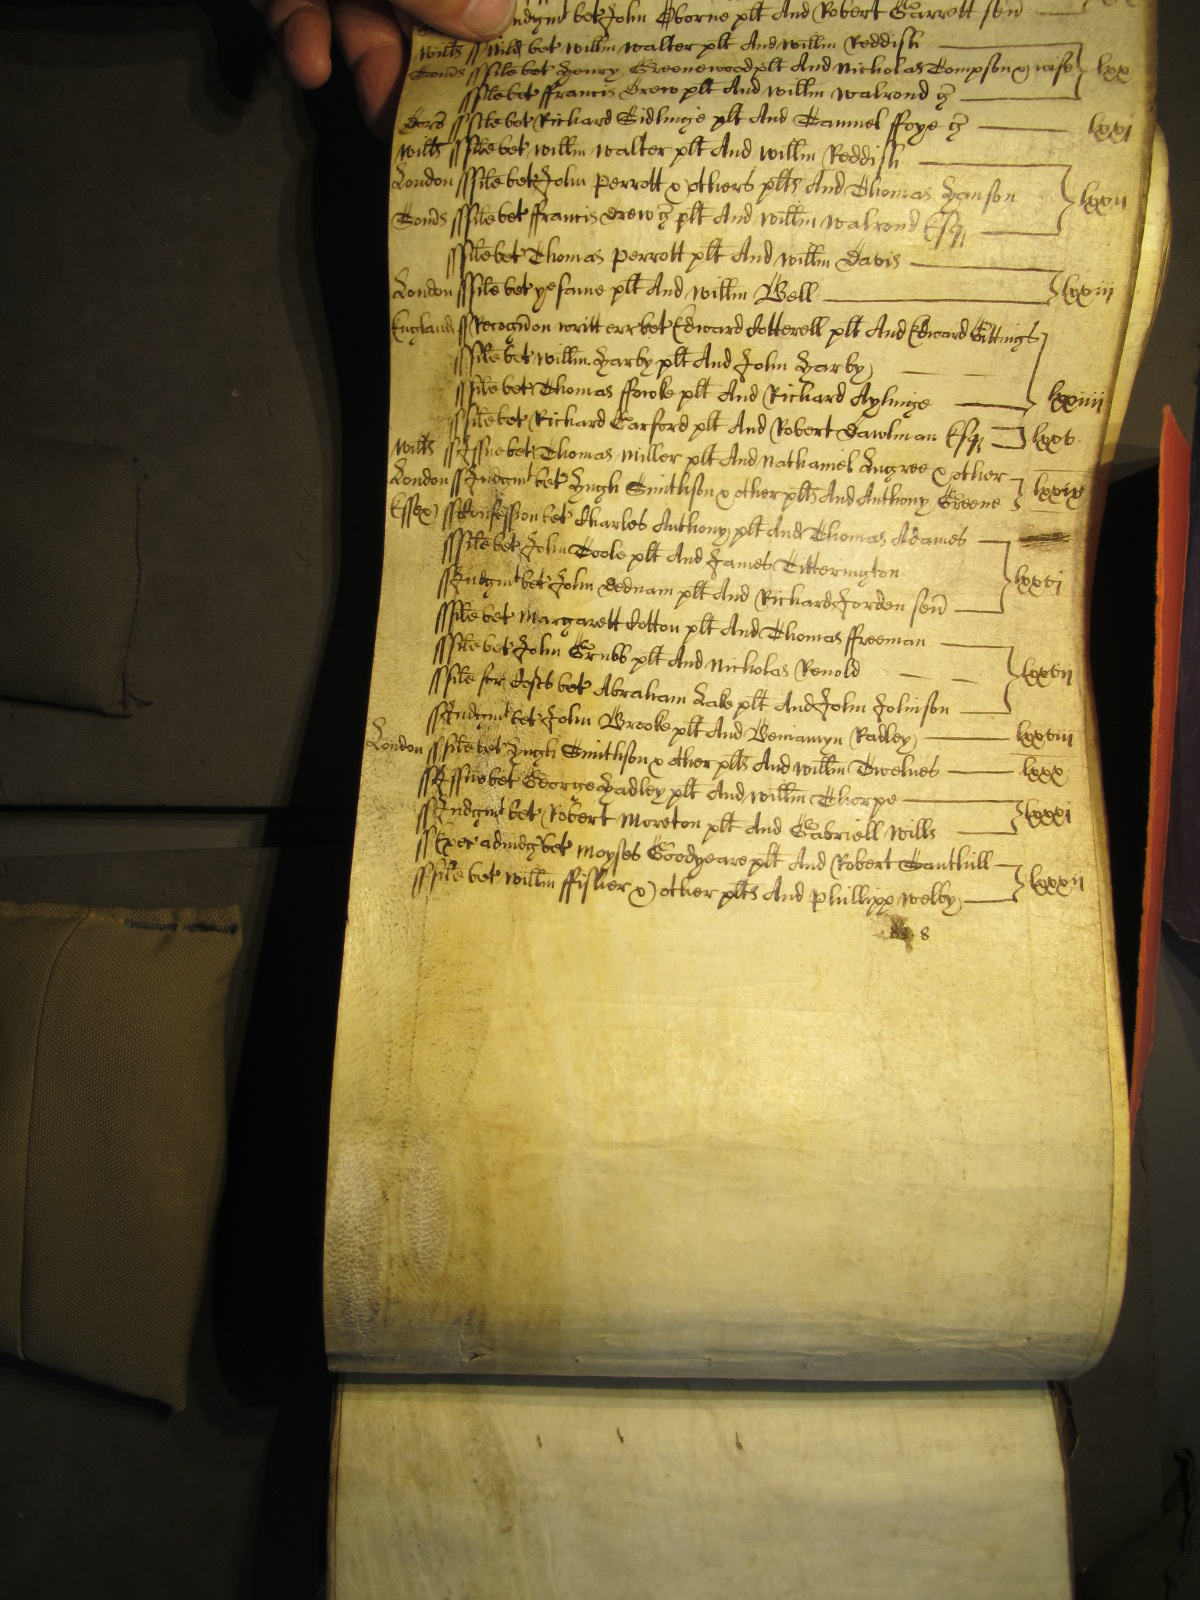 Judgmt bet John Oborne plt And Robert Garrett senr
Wiltes ss bet Willm Walter plt And Willm Reddish
ss file bet Henry Greenewood plt And Nicholas Tompson & wife lxx
ss file bet ffrancis Drew plt And Willm Walrond
Dors ss file bet Richard Sidlinge plt And Samuel ffoye lxxi
Wiltes ss file bet Willm Walter plt And Willm Reddish
London ss file bet John Perrott & others plts And Thomas Hanson lxxii
ss file bet ffrancis Drew plt And Willm Walrond Esq
ss file bet Thomas Perrott plt And Willm Davis
London ss file bet ye same plt And Willm Bell lxxiii
England ss Recognicon writt err bet Edward Cotterell plt And Edward Gittings
ss file bet Willm Harby plt And John Harby
ss file bet Thomas ffowke plt And Richard Aylinge lxxiiii
ss file bet Richard Garford plt And Robert Dawlman Esq lxxv
Wiltes ss Issue bet Thomas Miller plt And Nathaniel Angree & other
London ss Judgmt bet Hugh Smithson & other plts And Anthony Greene lxxix
Essex ss Confession bet Charles Anthony plt And Thomas Adames
ss file bet John Toole plt And James Titterington
ss Judgmt bet John Dednam plt And Richard Jorden senr lxxvi
ss file bet Margarett Cotton plt And Thomas ffreeman
ss file bet John Grubb plt And Nicholas Renold
ss file for Costs bet Abraham Lake plt And John Johnson lxxvii
ss Judgmt bet John Brooke plt And Beniamyn Radley lxxviii
London ss file bet Hugh Smithson & other plts And Willm Twelues lxxx
ss Issue bet George Hadley plt And Willm Thorpe
ss Judgmt bet Robert Moreton plt And Gabriell Wills lxxxi
ss Exec adiudg bet Moyses Goodyeare plt And Robert Tanthill
ss file bet Willm ffisher & other plts And Phillipp Welby lxxxii
8